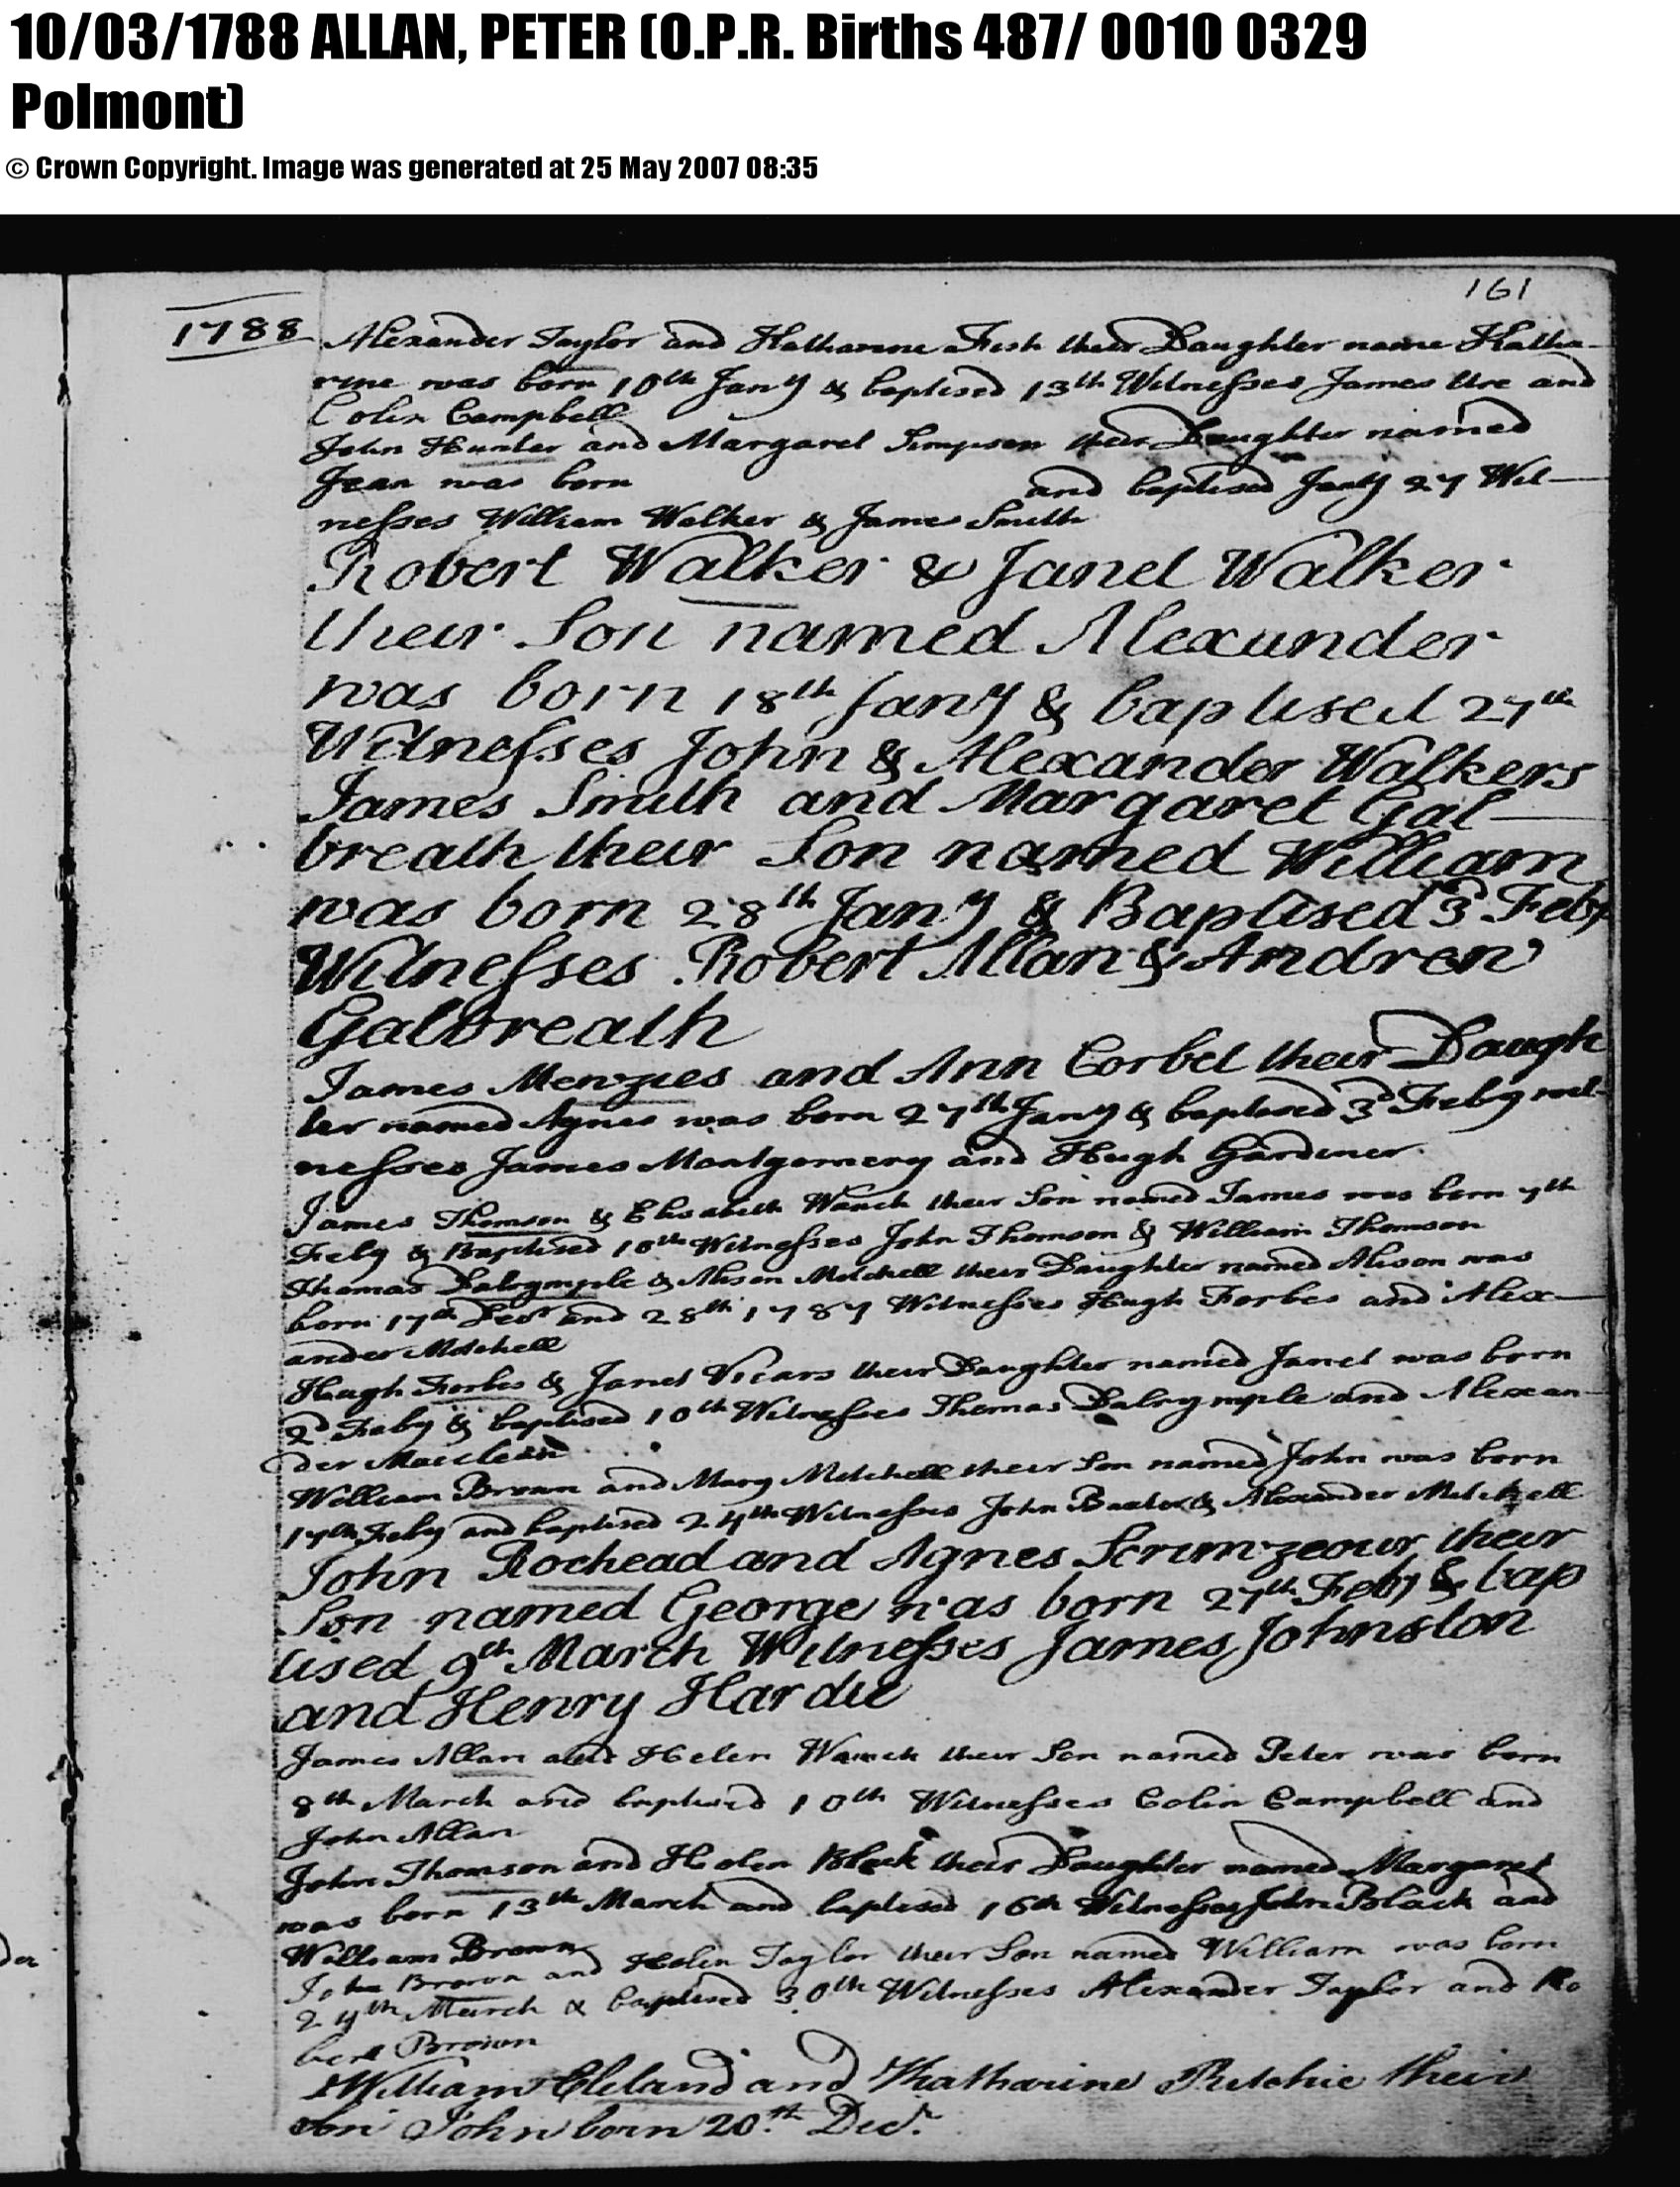 10/03/1788 ALLAN, PETER (O.P.R. Births 487/ 0010 0329
Polmont)
© Crown Copyright. Image was generated at 25 May 2007 08:35
161
1788
Alexander Taylor and Katharine Fish their Daughter name Katha-
rine was born 10th Jany & baptised 13th Witnesses James Ure and
Colin Campbell
John Hunter and Margaret Simpson their Daughter named
Jean was born and baptised Jany 27 Wit-
nesses William Walker & James Smith
Robert Walker & Janet Walker
their Son named Alexander
was born 18th Jany & baptised 27th
Witnesses John & Alexander Walkers
James Smith and Margaret Gal-
breath their Son named William
was born 28th Jany & Baptised 3d Feby
Witnesses Robert Allan & Andrew
Galbreath
James Menzies and Ann Corbet their Daugh
ter named Agnes was born 27th Jany & baptised 3d Feby wit-
nesses James Montgomery and Hugh Gardiner
James Thomson & Elisabeth Wauch their Son named James was born 7th
Feby & Baptised 10th Witnesses John Thomson & William Thomson
Thomas Dalrymple & Alison Mitchell their Daughter named Alison was
born 17th Decr and 28th 1787 Witnesses Hugh Forbes and Alex-
ander Mitchell
Hugh Forbes & Janet Vicars their Daughter named Janet was born
2d Feby & baptised 10th Witnesses Thomas Dalrymple and Alexan-
der Macclean
William Brown and Mary Mitchell their Son named John was born
17th Feby and baptised 24th Witnesses John Baxter & Alexander Mitchell
John Rochead and Agnes Scrimzeour their
Son named George was born 27th Feby & bap
tised 9th March Witnesses James Johnston
and Henry Hardie
James Allan and Helen Wauch their Son named Peter was born
8th March and baptised 10th Witnesses Colin Campbell and
John Allan
John Thomson and Helen Black their Daughter named Margaret
was born 13th March and baptised 16th Witnesses John Black and
William Brown
John Brown and Helen Taylor their Son named William was born
24th March & baptised 30th Witnesses Alexander Taylor and Ro
bert Brown
William Cleland and Katharine Ritchie their
son John born 20th Decr